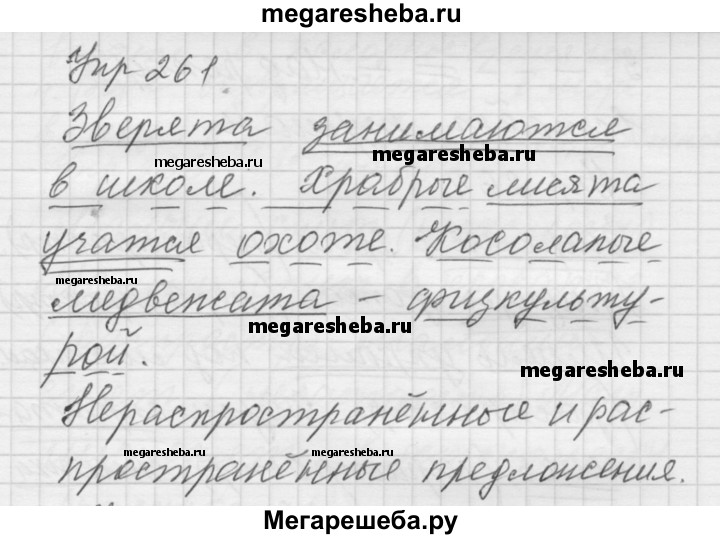 megaresheba.ru
Упр 261
Зверята занимаются
megaresheba.ru megaresheba.ru
в школе. Храбрые лисята
учатся охоте. Косолапые
megaresheba.ru
медвежата – физкульту-
megaresheba.ru megaresheba.ru
рой.
megaresheba.ru
Нераспространённые и рас-
megaresheba.ru megaresheba.ru
пространённые предложения.
Мегарешеба.ру